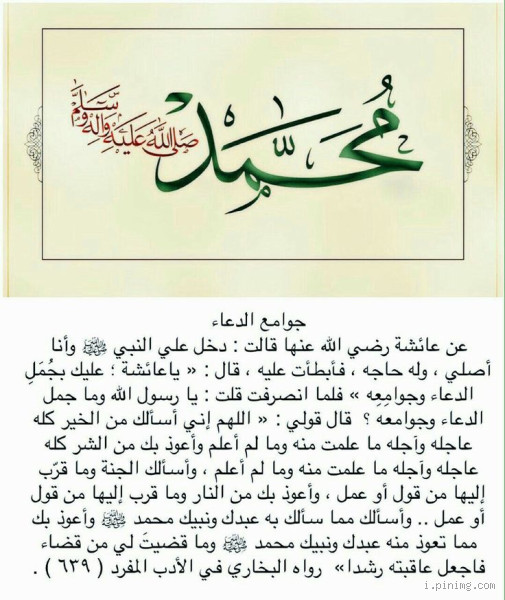 محمد
صلى الله عليه وآله وسلم
جوامع الدعاء
عن عائشة رضي الله عنها قالت : دخل علي النبي ﷺ وأنا
أصلي ، وله حاجه ، فأبطأت عليه ، قال : « ياعائشة ؛ عليك بجُمَلِ
الدعاء وجوامِعِه » فلما انصرفت قلت : يا رسول الله وما جمل
الدعاء وجوامعه ؟ قال قولي : « اللهم إني أسألك من الخير كله
عاجله وآجله ما علمت منه وما لم أعلم وأعوذ بك من الشر كله
عاجله وآجله ما علمت منه وما لم أعلم ، وأسألك الجنة وما قرّب
إليها من قول أو عمل ، وأعوذ بك من النار وما قرب إليها من قول
أو عمل .. وأسألك مما سألك به عبدك ونبيك محمد ﷺ وأعوذ بك
مما تعوذ منه عبدك ونبيك محمد ﷺ وما قضيتَ لي من قضاء
فاجعل عاقبته رشدا» رواه البخاري في الأدب المفرد ( ٦٣٩ ) .
i.pinimg.com